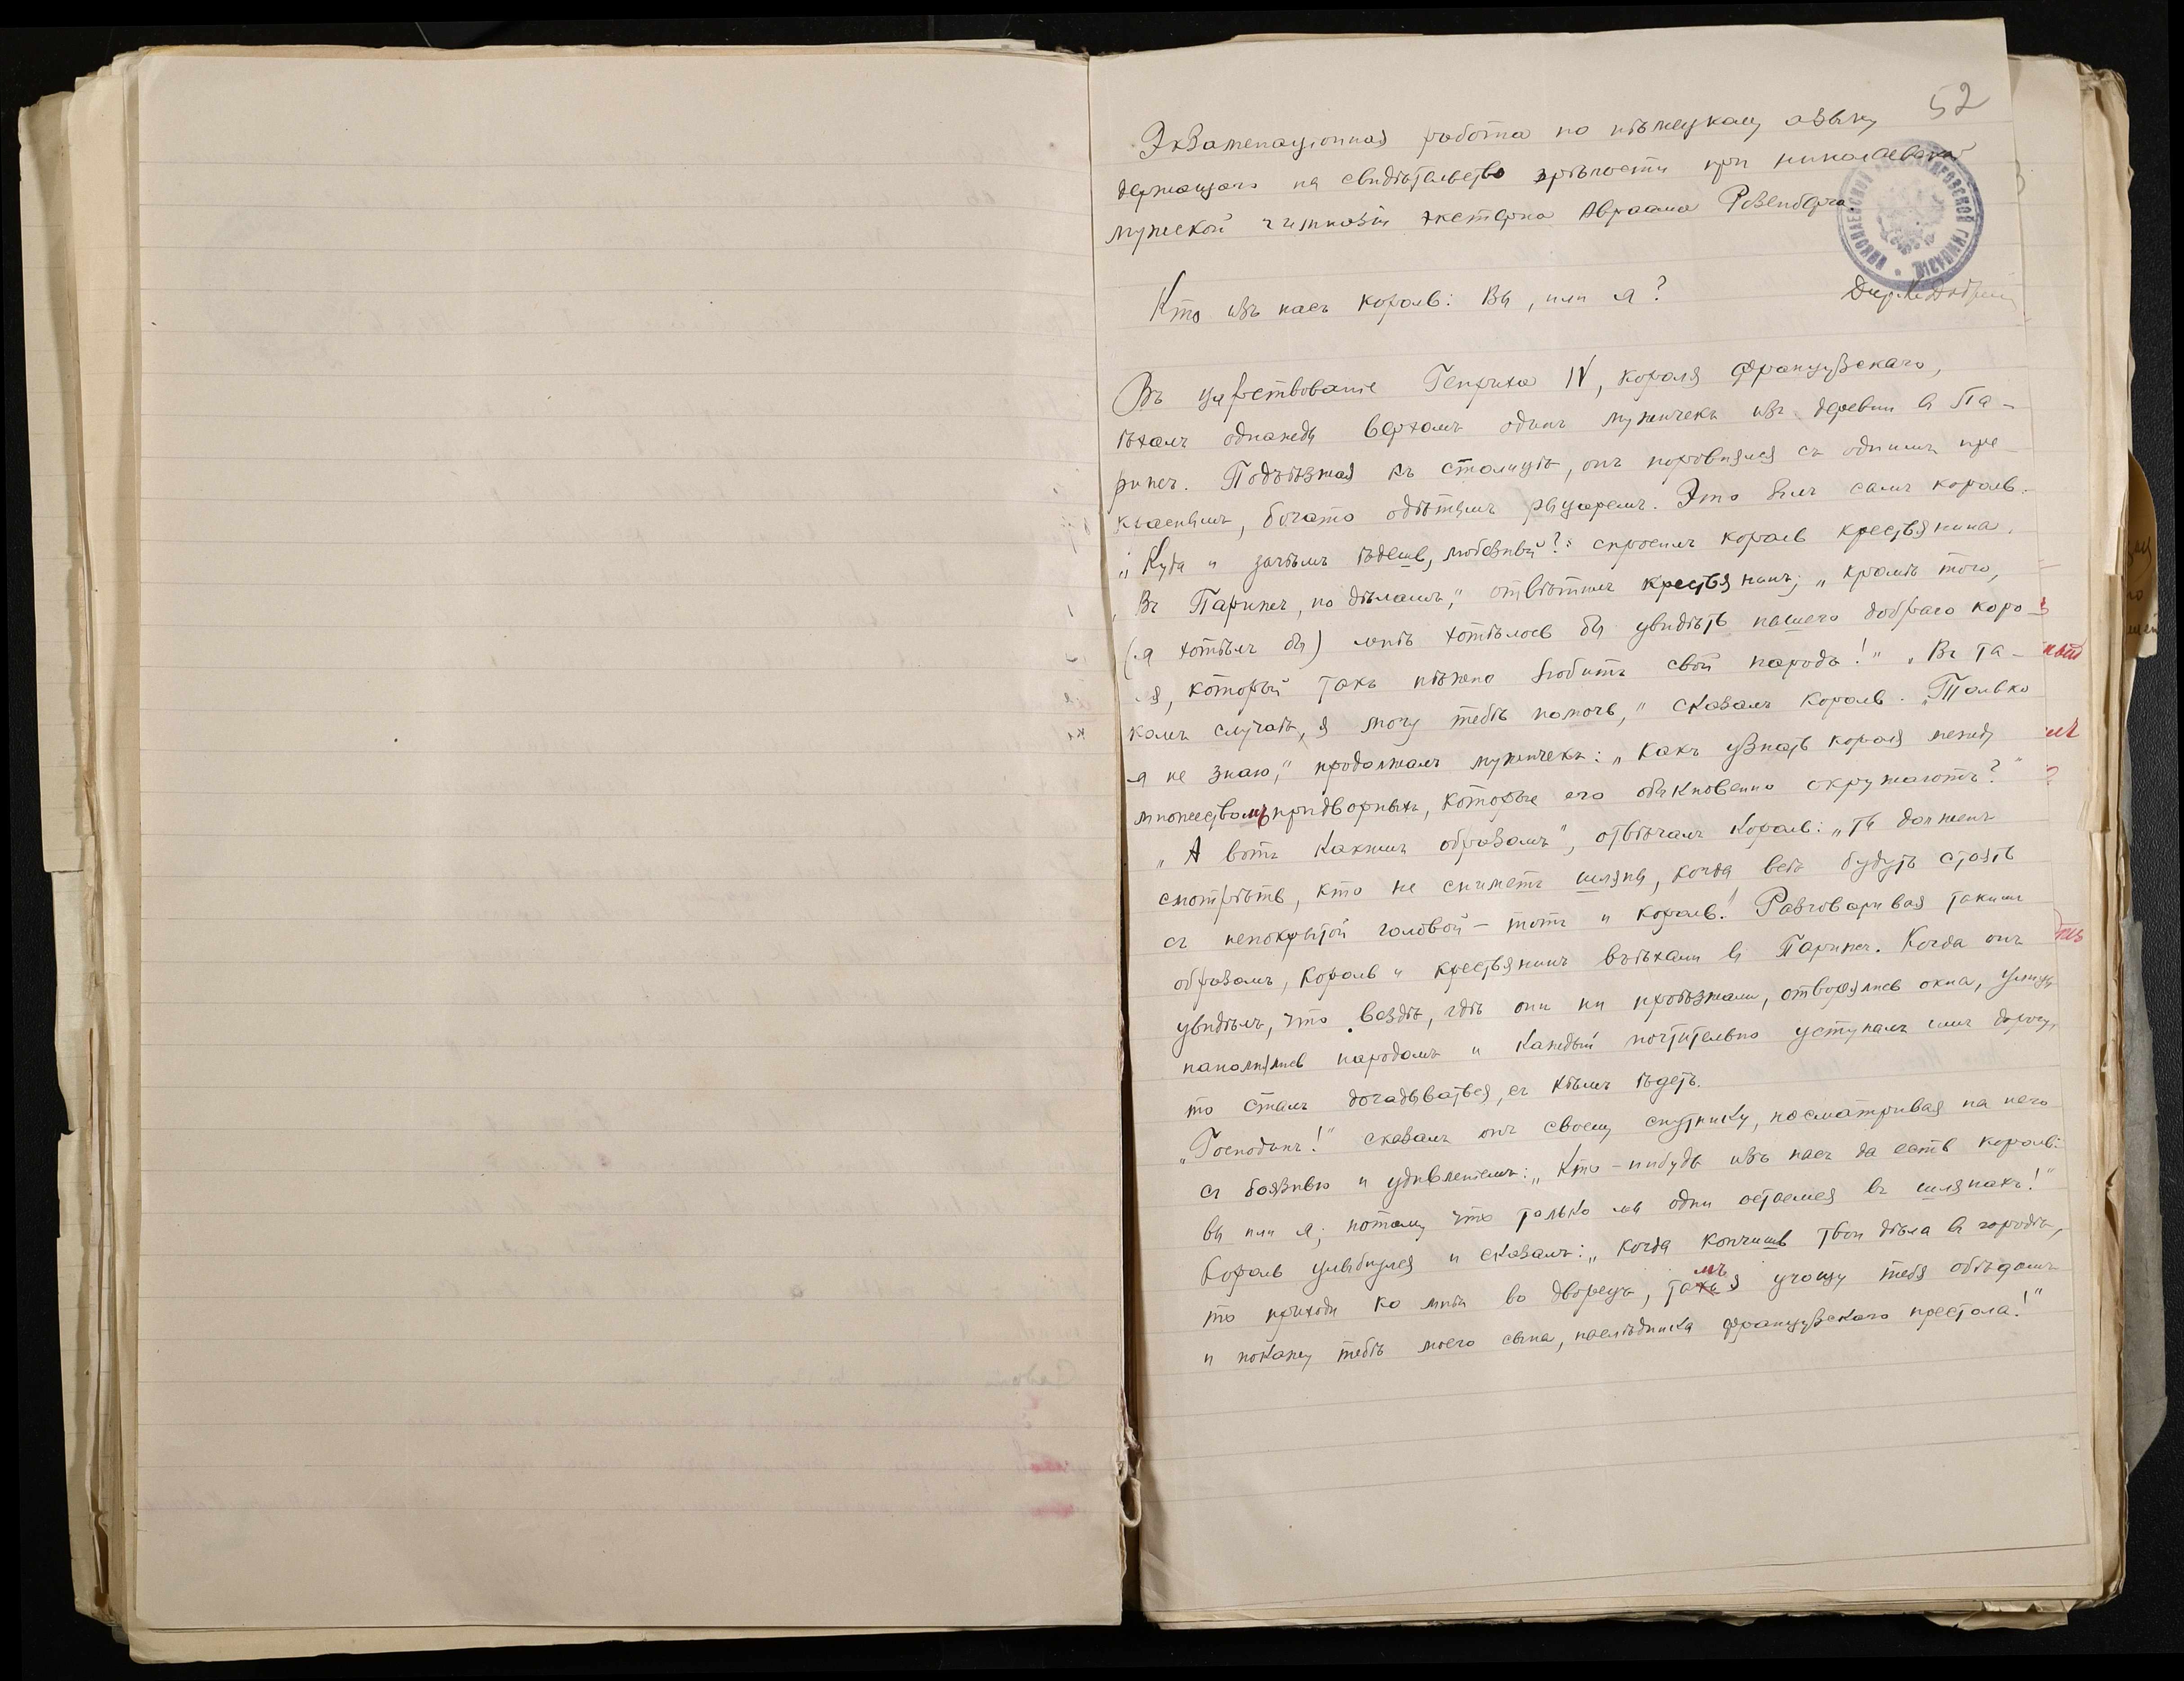 52
Экзаменаціонная работа по нѣмецкому языку
держащаго на свидѣтельство зрѣлости при Николаевской
мужской гимназіи экстерна Авраама Розенберга.
НИКОЛАЕВСКОЙ ГИМНАЗІИ
Кто изъ насъ король: Вы, или я?
Въ царствованіе Генриха IV, короля французскаго,
ѣхалъ однажды верхомъ одинъ мужичекъ изъ деревни въ Па-
рижъ. Подъѣзжая къ столицѣ, онъ поровнялся съ однимъ пре-
краснымъ, богато одѣтымъ рыцаремъ. Это былъ самъ король.
„Куда и зачѣмъ ѣдешь, любезный?" спросилъ король крестьянина.
„Въ Парижъ, по дѣламъ," отвѣтилъ крестьянинъ; „кромѣ того,
(я хотѣлъ бы) мнѣ хотѣлось бы увидѣть нашего добраго коро-
ля, который такъ нѣжно любитъ свой народъ!" „Въ та-
комъ случаѣ, я могу тебѣ помочь," сказалъ король. „Только
я не знаю," продолжалъ мужичекъ: „какъ узнать короля между
множествомъ придворныхъ, которые его обыкновенно окружаютъ?"
„А вотъ какимъ образомъ", отвѣчалъ король: „ты долженъ
смотрѣть, кто не сниметъ шляпы, когда всѣ будутъ стоять
съ непокрытой головой – тотъ и король." Разговаривая такимъ
образомъ, король и крестьянинъ въѣхали въ Парижъ. Когда онъ
увидѣлъ, что вездѣ, гдѣ они ни проѣзжали, отворялись окна, улицы
наполнялись народомъ и каждый почтительно уступалъ имъ дорогу,
то сталъ догадываться, съ кѣмъ ѣдетъ.
„Господинъ!" сказалъ онъ своему спутнику, посматривая на него
съ боязнью и удивленіемъ: „Кто-нибудь изъ насъ да есть король:
вы или я; потому что только мы одни остаемся въ шляпахъ!"
Король улыбнулся и сказалъ: „когда кончишь твои дѣла въ городѣ,
то приходи ко мнѣ во дворецъ, тамъ я угощу тебя обѣдомъ
и покажу тебѣ моего сына, наслѣдника французскаго престола!"